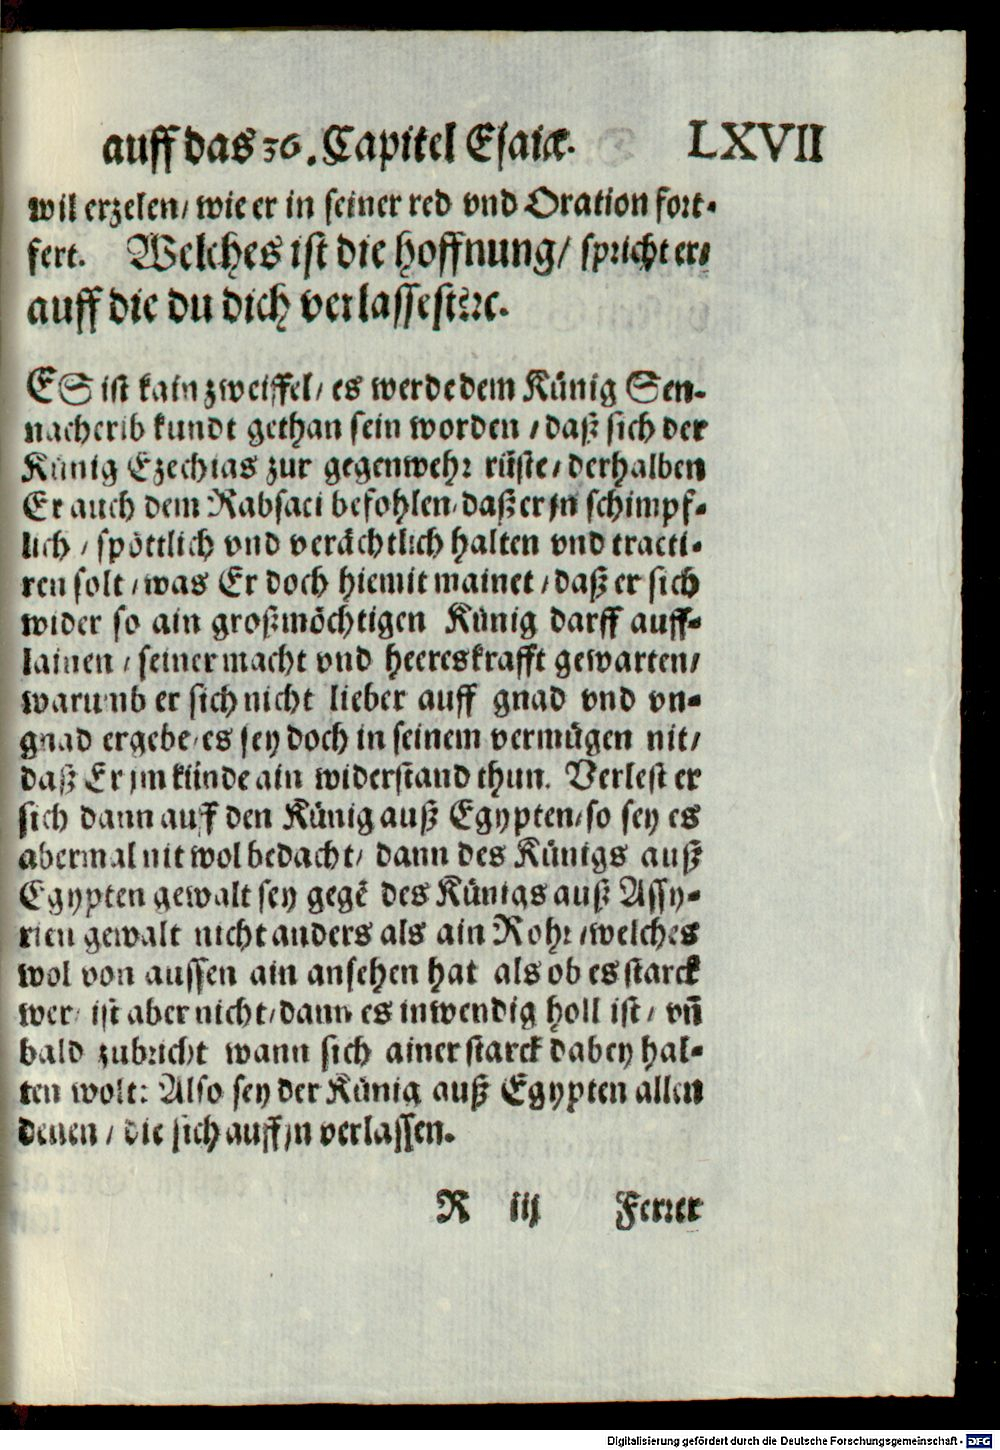 auff das 36. Capitel Esaiæ. LXVII
wil erzelen/ wie er in seiner red vnd Oration fort-
fert. Welches ist die hoffnung/ spricht er/
auff die du dich verlassest ꝛc.
ES ist kain zweiffel/ es werde dem Künig Sen-
nacherib kundt gethan sein worden / daß sich der
Künig Ezechias zur gegenwehr rüste/ derhalben
Er auch dem Rabsaci befohlen/ daß er jn schimpf-
lich / spöttlich vnd verächtlich halten vnd tracti-
ren solt / was Er doch hiemit mainet / daß er sich
wider so ain großmöchtigen Künig darff auff-
lainen / seiner macht vnd heereskrafft gewarten/
warumb er sich nicht lieber auff gnad vnd vn-
gnad ergebe/ es sey doch in seinem vermügen nit/
daß Er jm künde ain widerstand thun. Verlest er
sich dann auff den Künig auß Egypten/ so sey es
abermal nit wol bedacht/ dann des Künigs auß
Egypten gewalt sey gegē des Künigs auß Assy-
rien gewalt nicht anders als ain Rohr / welches
wol von aussen ain ansehen hat als ob es starck
wer/ ist aber nicht/ dann es inwendig holl ist/ vñ
bald zubricht wann sich ainer starck dabey hal-
ten wolt: Also sey der Künig auß Egypten allen
denen / die sich auff jn verlassen.
R iij Ferrer
Digitalisierung gefördert durch die Deutsche Forschungsgemeinschaft - DFG